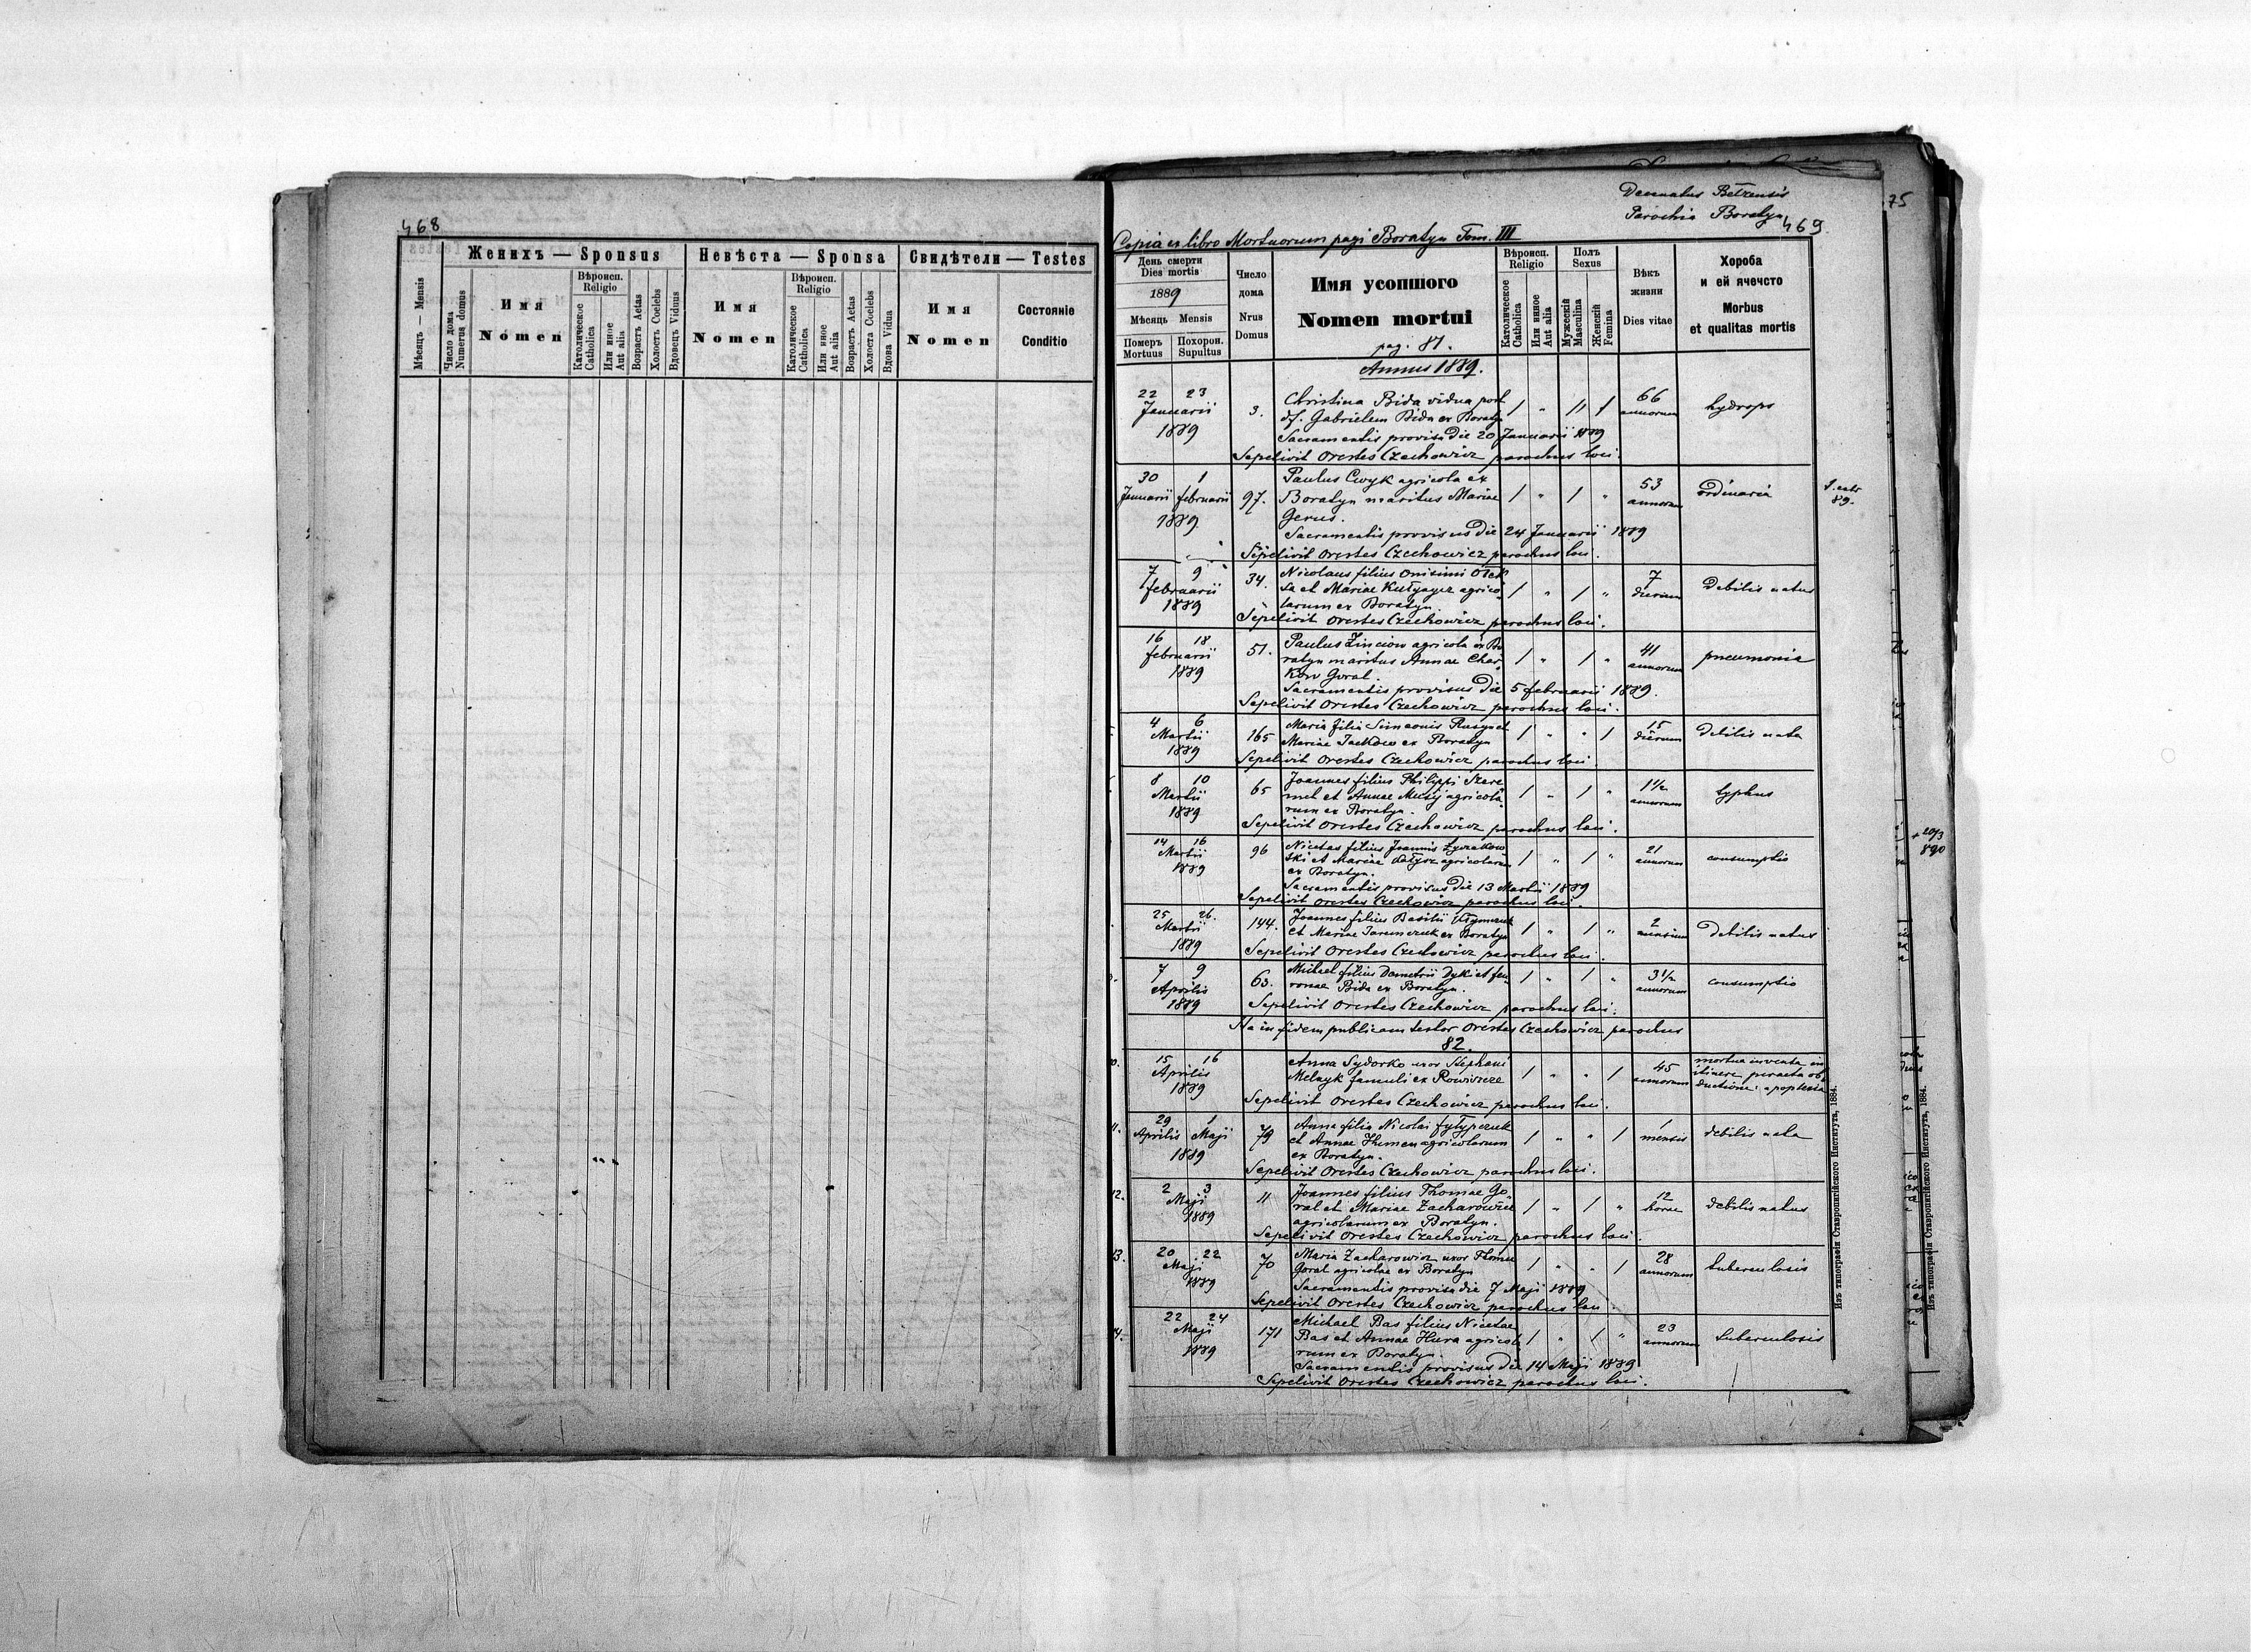 468
Женихъ — Sponsus
Невѣста — Sponsa
Свидѣтели — Testes
Мѣсяцъ — Mensis
Число дома
Numerus domus
Имя
Nomen
Вѣроисп.
Religio
Католическое
Catholica
Или иное
Aut alia
Возрастъ Aetas
Холостъ Coelebs
Вдовецъ Viduus
Имя
Nomen
Вѣроисп.
Religio
Католическое
Catholica
Или иное
Aut alia
Возрастъ Aetas
Холоста Coelebs
Вдова Vidua
Имя
Nomen
Состояніе
Conditio
Decanatus Bełzensis
Parochia Boratyn
469.
75
Copia ex libro Mortuorum pagi Boratyn Tom. III
День смерти
Dies mortis
1889
Мѣсяцъ Mensis
Померъ
Mortuus
Похорон.
Supultus
Число
дома
Nrus
Domus
Имя усопшого
Nomen mortui
pag. 81.
Вѣроисп.
Religio
Католическое
Catholica
Или иное
Aut alia
Полъ
Sexus
Мужескій
Masculina
Женскій
Femina
Вѣкъ
жизни
Dies vitae
Хороба
и ей ячество
Morbus
et qualitas mortis
Annus 1889.
22 23
Januarii
1889
3.
Christina Bida vidua post
df. Gabrielem Bida ex Boratyn
66
annorum
hydrops
Sacramentis provisa die 20 Januarii 1889
Sepelivit Orestes Czechowicz parochus loci.
30 1
Januarii februarii
1889
97.
Paulus Cwyk agricola ex
Boratyn maritus Mariae
Gerus.
1 " 1 "
53
annorum
ordinaria
Sacramentis provisus die 24 Januarii 1889
Sepelivit Orestes Czechowicz parochus loci.
7 9
februarii
1889
34.
Nicolaus filius Onisimi
et Mariae agrico
larum ex Boratyn.
1 " 1 "
7
dierum
debilis natus
Sepelivit Orestes Czechowicz parochus loci.
16 18
februarii
1889
51.
Paulus Zinciow agricola ex Bo
ratyn maritus Annae Char
kow Goral.
1 " 1 "
41
annorum
pneumonia
Sacramentis provisus die 5 februarii 1889.
Sepelivit Orestes Czechowicz parochus loci.
4 6
Martii
1889
165
Maria filia Simeonis Rusyn et
Mariae Jackow ex Boratyn
1 " " 1
15
dierum
debilis nata
Sepelivit Orestes Czechowicz parochus loci.
8 10
Martii
1889
65
Joannes filius Philippi Szere
met et Annae Musij agricola
rum ex Boratyn.
1 " 1 "
1½
annorum
typhus
Sepelivit Orestes Czechowicz parochus loci.
14 16
Martii
1889
96
Nicetas filius Joannis
ski et Mariae agricolarum
ex Boratyn.
1 " 1 "
21
annorum
consumptio
Sacramentis provisus die 13 Martii 1889
Sepelivit Orestes Czechowicz parochus loci.
25 26.
Martii
1889
144.
Joannes filius Basilii
et Mariae Jaremczuk ex Boratyn
1 " 1 "
2
mensium
debilis natus
Sepelivit Orestes Czechowicz parochus loci.
7 9
Aprilis
1889
63.
Michael filius Demetrii Dyki et feu
roniae Bida ex Boratyn.
1 " 1 "
3½
annorum
consumptio
Sepelivit Orestes Czechowicz parochus loci.
Ita in fidem publicam testor Orestes Czechowicz parochus
82.
15 16
Aprilis
1889
Anna Sydorko uxor Stephani
Melnyk famuli ex
1 " " 1
45
annorum
mortua inventa in
itinere peracta ob
ductione: apoplexia
Sepelivit Orestes Czechowicz parochus loci.
11.
29 1
Aprilis Maji
1889
79
Anna filia Nicolai fyłypczuk
et Annae Human agricolarum
ex Boratyn.
1 " " 1
1
mensis
debilis nata
Sepelivit Orestes Czechowicz parochus loci.
12.
2 3
Maji
1889
11
Joannes filius Thomae Go
ral et Mariae Zacharowicz
agricolarum ex Boratyn.
1 " 1 "
12
horae
debilis natus
Sepelivit Orestes Czechowicz parochus loci.
13.
20 22
Maji
1889
70
Maria Zacharowicz uxor Thomae
Goral agricolae ex Boratyn
1 " " 1
28
annorum
tuberculosis
Sacramentis provisa die 7 Maji 1889
Sepelivit Orestes Czechowicz parochus loci
14.
22 24
Maji
1889
171
Michael Bas filius Nicetae
Bas et Annae Hura agricola
rum ex Boratyn.
1 " 1 "
23
annorum
tuberculosis
Sacramentis provisus die 14 Maji 1889
Sepelivit Orestes Czechowicz parochus loci.
Изъ типографіи Ставропигійского Института, 1884.
Изъ типографіи Ставропигійского Института, 1884.
+ 20/3
890